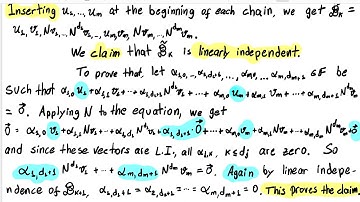 Inserting u₁,…,uₘ at the beginning of each chain, we get B̃ₖ =
u₁, v₁, Nv₁,…, N^{d₁}v₁,…, uₘ, vₘ, Nvₘ,…, N^{dₘ}vₘ.
We claim that B̃ₖ is linearly independent.
To prove that let α₁,₀,…,α₁,d₁+₁,…,αₘ,₀,…,αₘ,dₘ+₁ ∈ F be
Such that α₁,₀ u₁ + α₁,₁ v₁ + … + α₁,d₁+₁ N^{d₁}v₁ + … + αₘ,₀ uₘ + αₘ,₁ vₘ + … + αₘ,dₘ+₁ N^{dₘ}vₘ
= 0⃗. Applying N to the equation, we get
0⃗ = α₁,₀ v₁ + α₁,₁ Nv₁ + … + α₁,d₁ N^{d₁}v₁ + α₁,d₁+₁ 0⃗ + … + αₘ,₀ vₘ + αₘ,₁ Nvₘ + … + αₘ,dₘ N^{dₘ}vₘ + 0⃗
and since these vectors are L.I., all αⱼ,ₖ, k≤dⱼ are zero. So
α₁,d₁+₁ N^{d₁}v₁ + … + αₘ,dₘ+₁ N^{dₘ}vₘ = 0⃗. Again by linear indepe-
ndence of Bₖ₊₁, α₁,d₁+₁ = α₂,d₂+₁ = … = αₘ,dₘ+₁ = 0. This proves the claim.